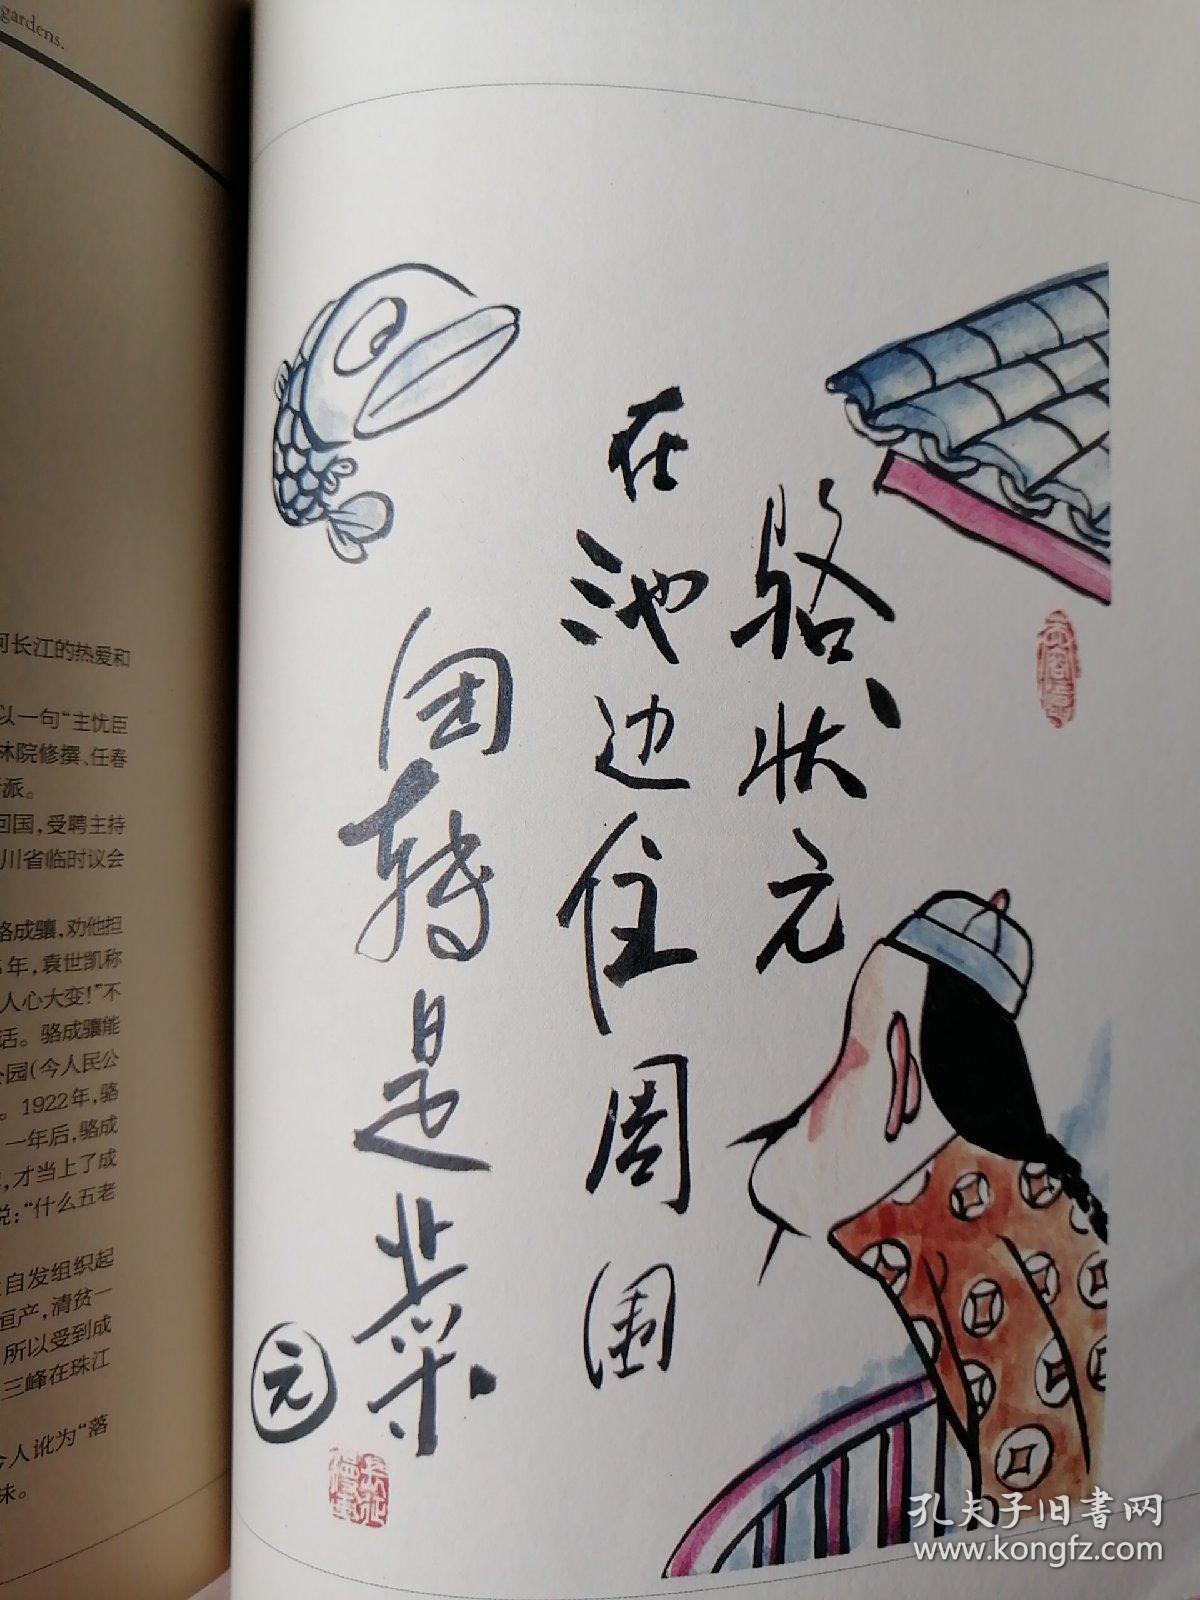 gardens.
骆状元
在池边住周围
团转是韭菜
元
河长江的热爱和
以一句“主忧臣
林院修撰、任春
派。
回国，受聘主持
川省临时议会
骆成骧，劝他担
年，袁世凯称
人心大变！”不
活。骆成骧能
公园（今人民公
。1922年，骆
一年后，骆成
，才当上了成
说：“什么五老
自发组织起
恒产，清贫一
所以受到成
三峰在珠江
今人讹为“落
孔夫子旧书网
www.kongfz.com